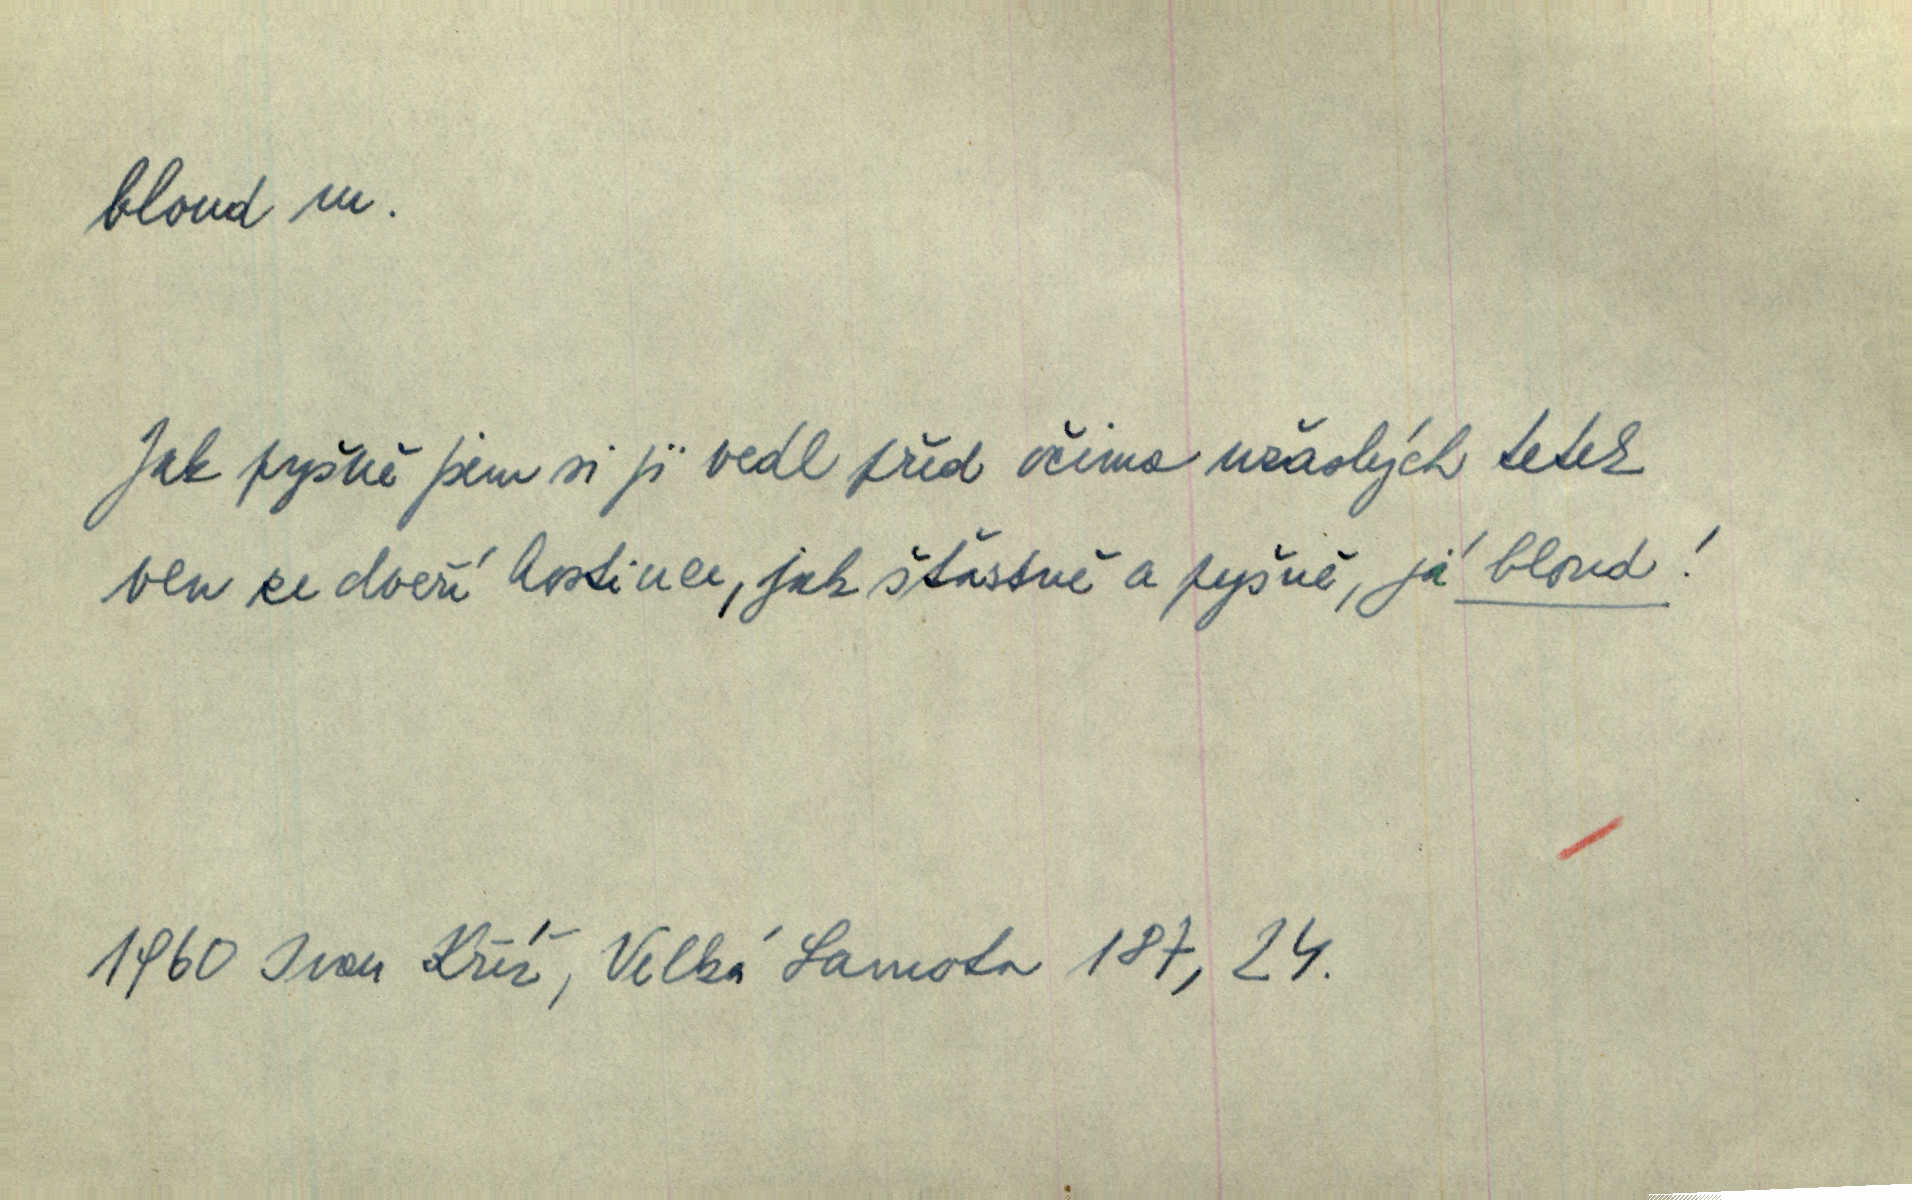 bloud m.
Jak pyšně jsem si ji vedl před očima užaslých tetek
ven ze dveří hostince, jak šťastně a pyšně, já bloud!
1960 Ivan Kříž, Velká Samota 187, 24.